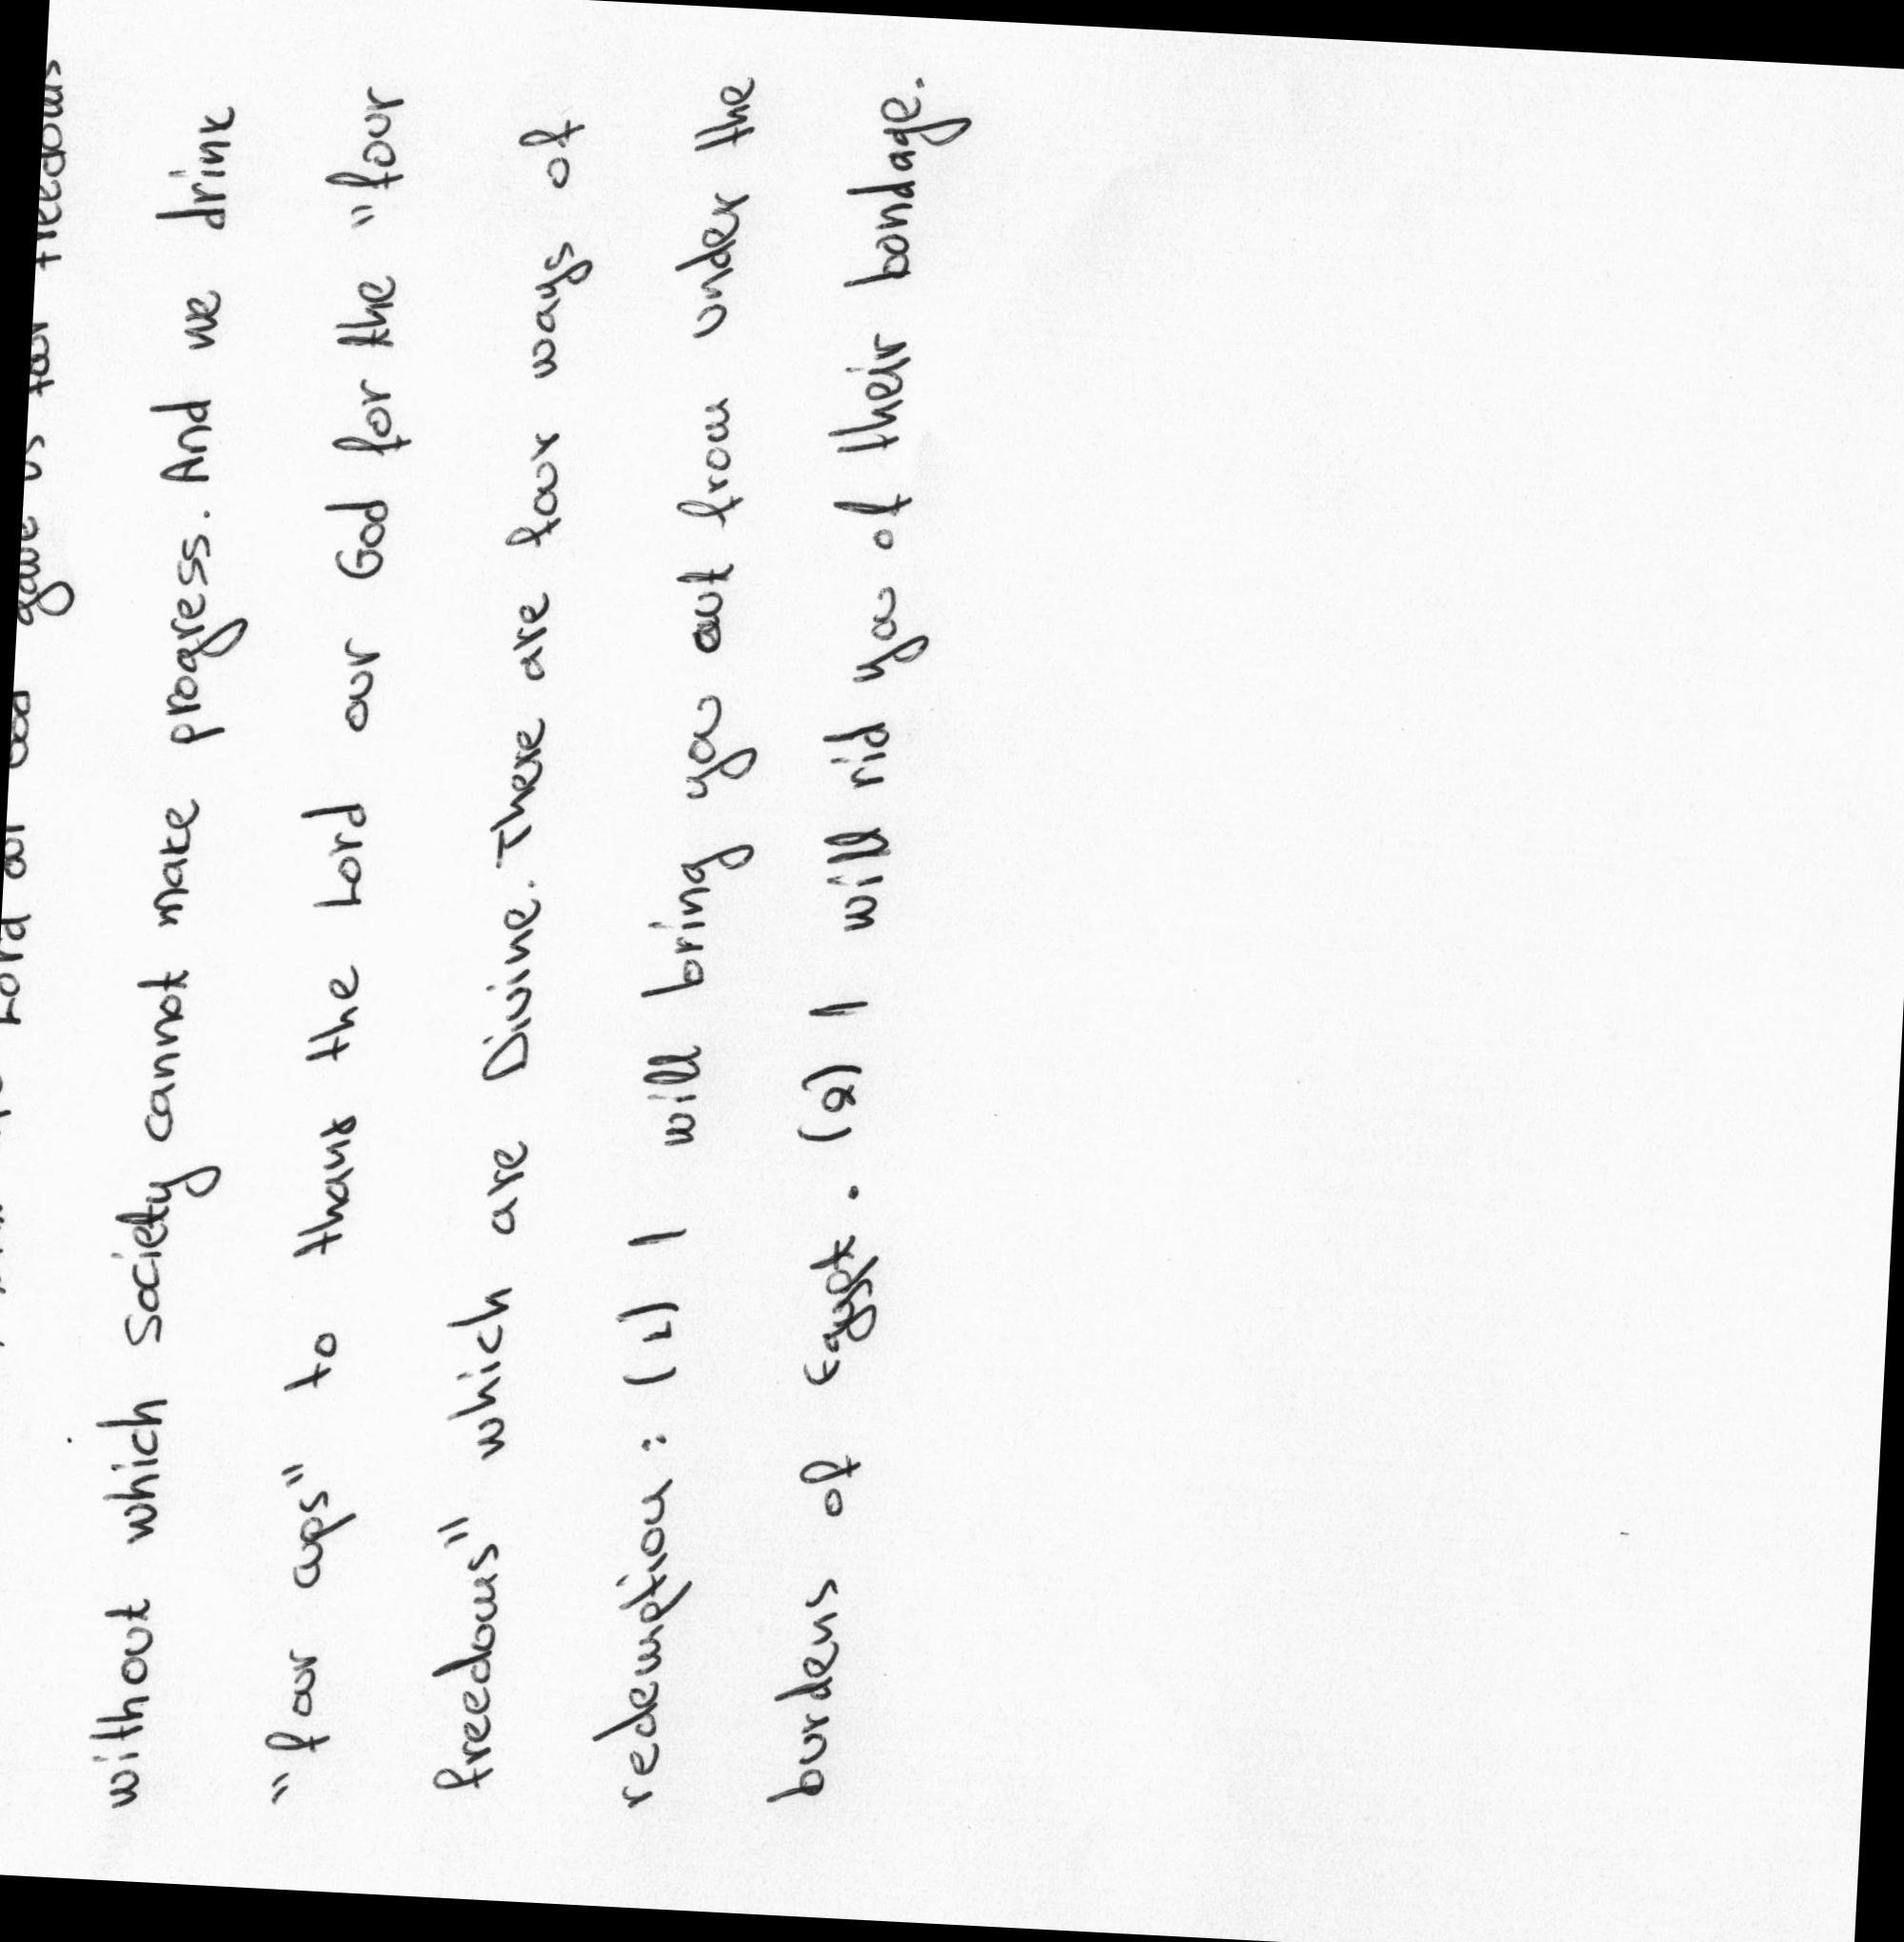 Lord our God gave us four freedoms
without which Society cannot make progress. And we drink
"four cups" to thank the Lord our God for the "four
freedoms" which are Divine. There are four ways of
redemption : (1) I will bring you out from under the
burdens of Egypt. (2) I will rid you of their bondage.